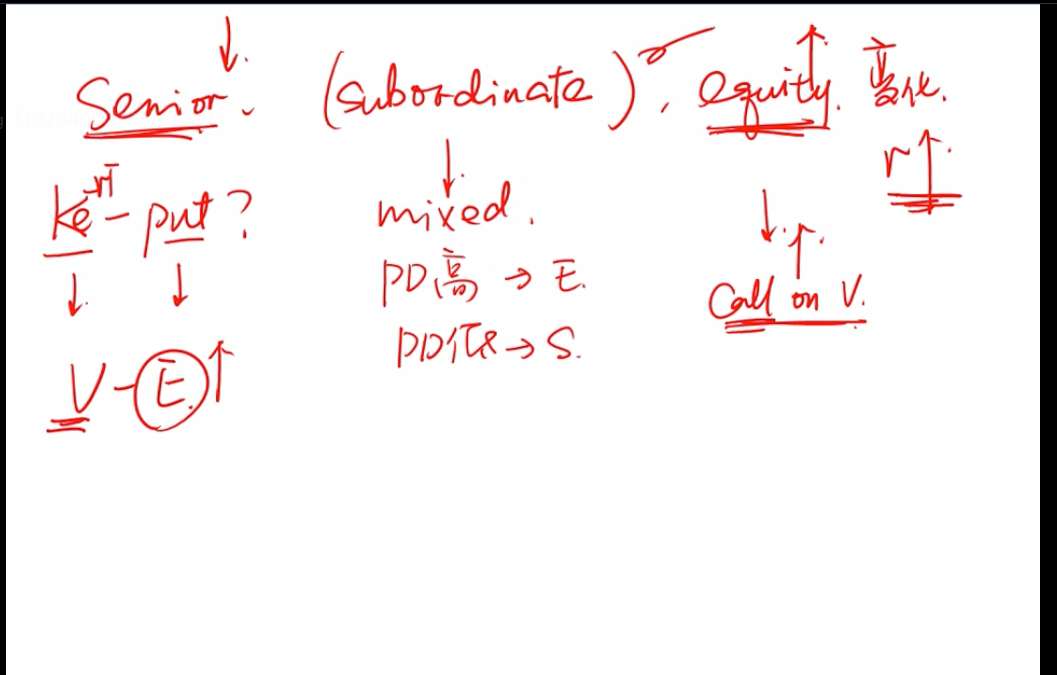 ↓. ↑.
Senior. (subordinate), equity. 变化.
r↑.
Ke^-rT - put? ↓. mixed. ↓.↑.
↓. ↓ PD高 → E. Call on V.
V - E ↑ PD低 → S.